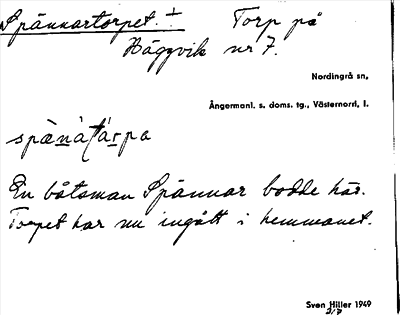 Spännartorpet. ⊥ Torp på
Häggvik nr 7.
Nordingrå sn,
Ångermanl. s. doms. tg., Västernorrl. l.
En båtsman Spännar bodde här.
Torpet har nu ingått i hemmanet.
Sven Hiller 1949
2/7